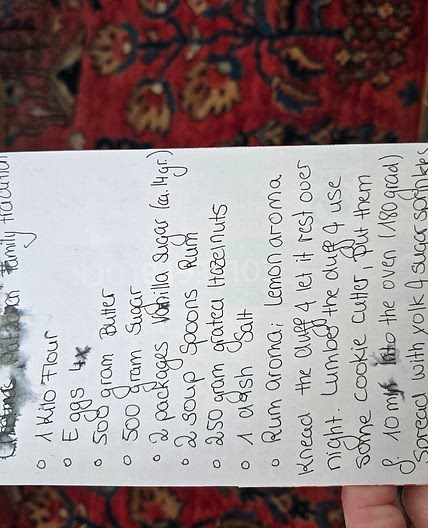 Family tradition
o 1 Kilo Flour
o Eggs 4x
o 500 gram Butter
o 500 gram Sugar
o 2 packages Vanilla sugar (ca. 14gr.)
o 2 soup spoons Rum
o 250 gram grated Hazelnuts
o 1 dash Salt
o Rum aroma, Lemon aroma
Knead the duff & let it rest over
night. the duff & use
some cookie cutter, put them
f. 10 min into the oven (180 grad)
spread with yolk & sugar sprinkles